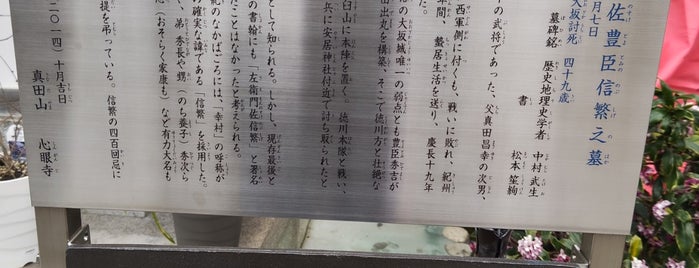 佐豊臣信繁之墓
月七日
大坂討死 四十九歳
墓碑銘 歴史地理史学者 中村武生
書 松本笙絢
の武将であった、父真田昌幸の次男、
西軍側に付くも、戦いに敗れ、紀州
年間、蟄居生活を送り、慶長十九年
の大坂城唯一の弱点とも豊臣秀吉が
出丸を構築、そこで徳川方と壮絶な
臼山に本陣を置く。徳川本隊と戦い、
兵に安居神社付近で討ち取られたと
として知られる。しかし、現存最後と
の書翰にも「左衛門佐信繁」と署名
たことはなかったと考えられる。
紀のなかばごろには、「幸村」の呼称が
の確実な諱である「信繁」を採用した。
、弟秀長や甥(のち養子)秀次ら
だ(おそらく家康も)など有力大名も
提を弔っている。信繁の四百回忌に
二〇一四)十月吉日
真田山 心眼寺